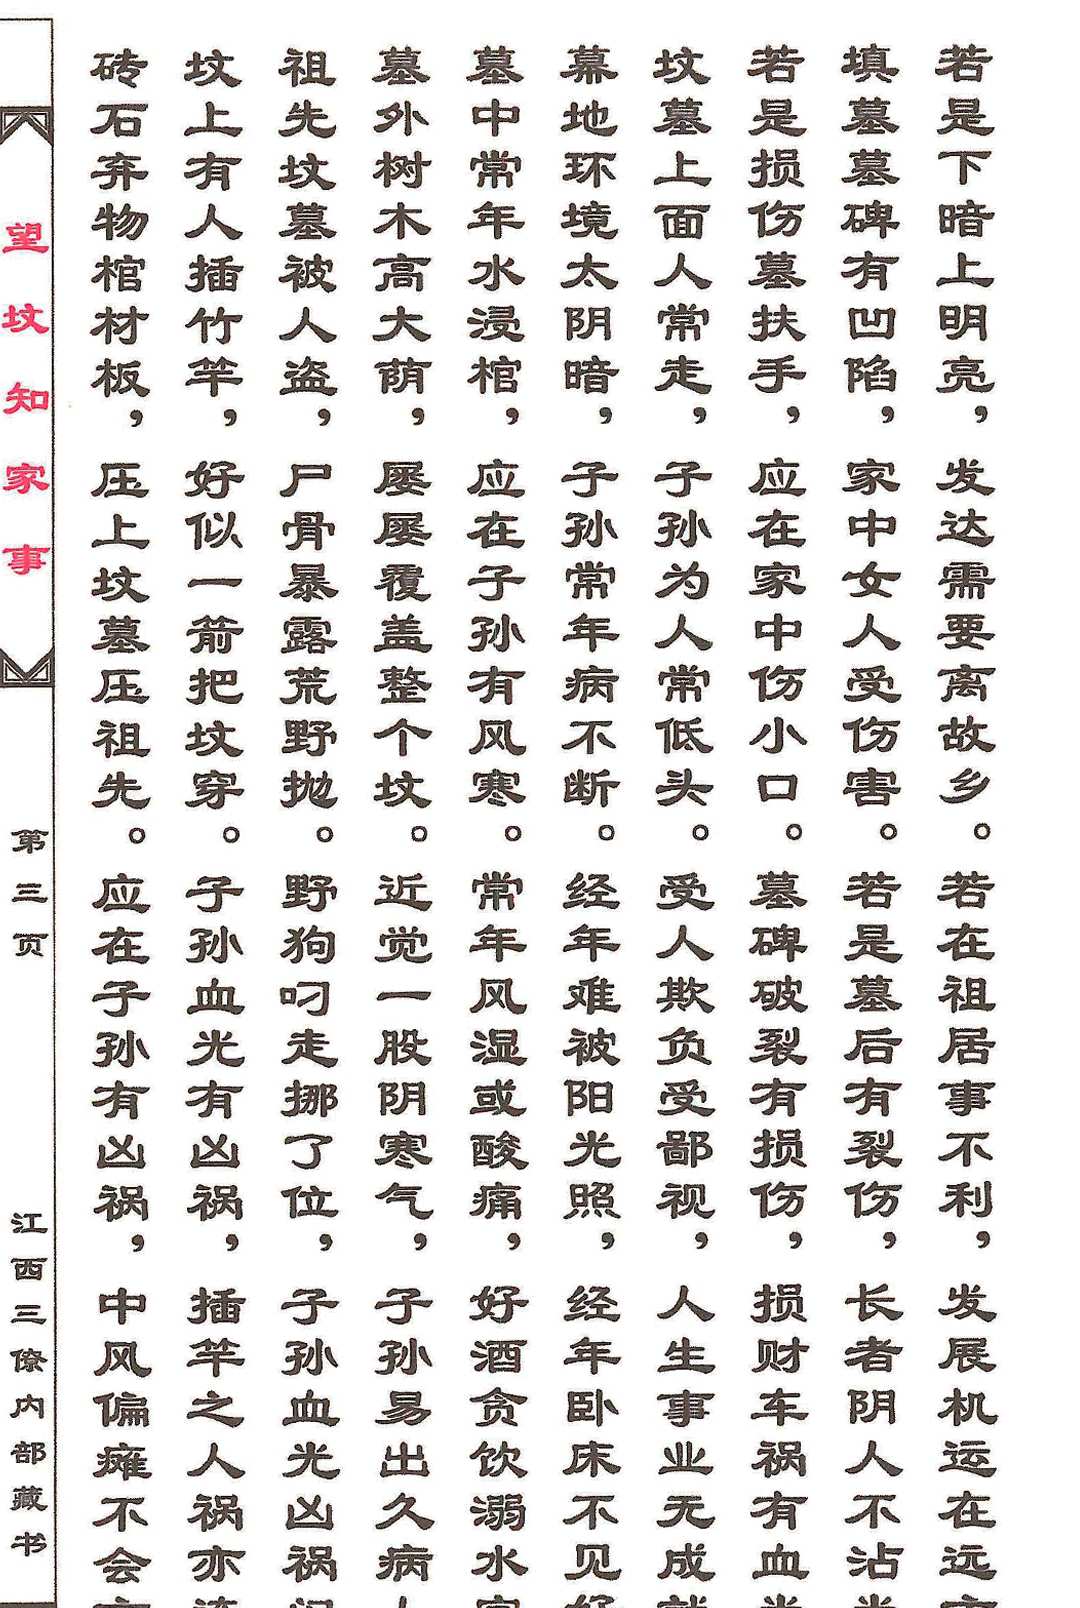 若是下暗上明亮，发达需要离故乡。若在祖居事不利，发展机运在远
填墓墓碑有凹陷，家中女人受伤害。若是墓后有裂伤，长者阴人不沾
若是损伤墓扶手，应在家中伤小口。墓碑破裂有损伤，损财车祸有血
坟墓上面人常走，子孙为人常低头。受人欺负受鄙视，人生事业无成
幕地环境太阴暗，子孙常年病不断。经年难被阳光照，经年卧床不见
墓中常年水浸棺，应在子孙有风寒。常年风湿或酸痛，好酒贪饮溺水
墓外树木高大荫，屡屡覆盖整个坟。近觉一股阴寒气，子孙易出久病
祖先坟墓被人盗，尸骨暴露荒野抛。野狗叼走挪了位，子孙血光凶祸
坟上有人插竹竿，好似一箭把坟穿。子孙血光有凶祸，插竿之人祸亦
砖石弃物棺材板，压上坟墓压祖先。应在子孙有凶祸，中风偏瘫不会
望坟知家事
第三页
江西三僚内部藏书